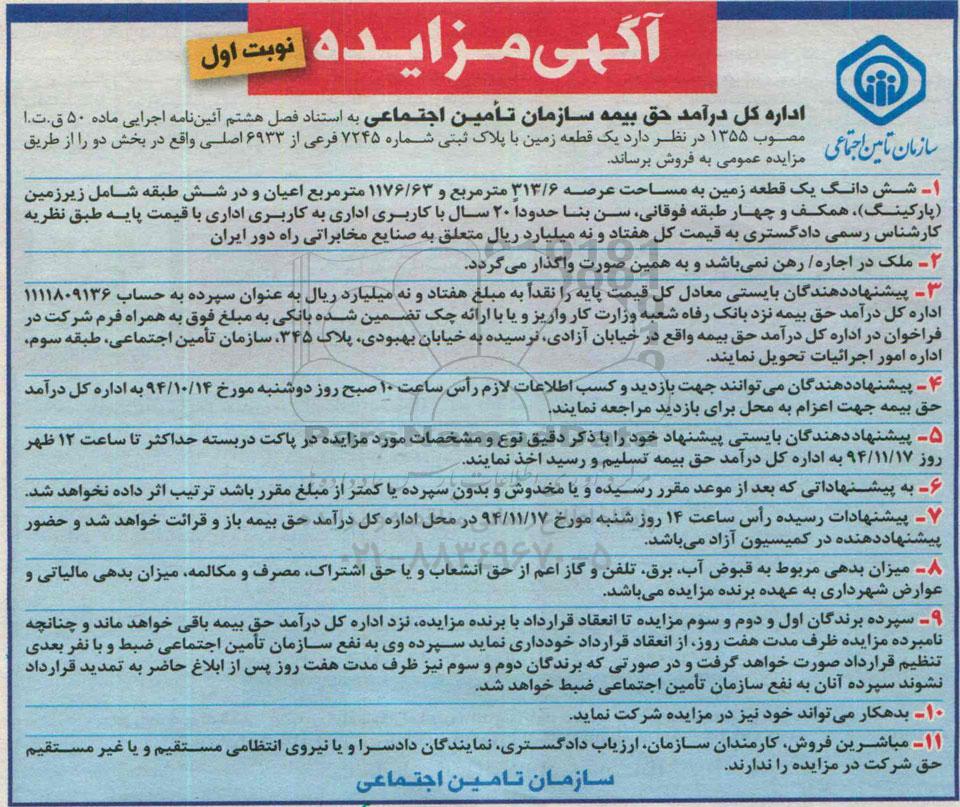 آگهی مزایده
نوبت اول
سازمان تامین اجتماعی
اداره کل درآمد حق بیمه سازمان تأمین اجتماعی به استناد فصل هشتم آئین‌نامه اجرایی ماده ۵۰ ق.ت.ا
مصوب ۱۳۵۵ در نظر دارد یک قطعه زمین با پلاک ثبتی شماره ۷۲۴۵ فرعی از ۶۹۳۳ اصلی واقع در بخش دو را از طریق
مزایده عمومی به فروش برساند.
۱- شش دانگ یک قطعه زمین به مساحت عرصه ۳۱۳/۶ مترمربع و ۱۱۷۶/۶۳ مترمربع اعیان و در شش طبقه شامل زیرزمین
(پارکینگ)، همکف و چهار طبقه فوقانی، سن بنا حدوداً ۲۰ سال با کاربری اداری به کاربری اداری با قیمت پایه طبق نظریه
کارشناس رسمی دادگستری به قیمت کل هفتاد و نه میلیارد ریال متعلق به صنایع مخابراتی راه دور ایران
۲- ملک در اجاره/ رهن نمی‌باشد و به همین صورت واگذار می‌گردد.
۳- پیشنهاددهندگان بایستی معادل کل قیمت پایه را نقداً به مبلغ هفتاد و نه میلیارد ریال به عنوان سپرده به حساب ۱۱۱۱۸۰۹۱۳۶
اداره کل درآمد حق بیمه نزد بانک رفاه شعبه وزارت کار واریز و یا با ارائه چک تضمین شده بانکی به مبلغ فوق به همراه فرم شرکت در
فراخوان در اداره کل درآمد حق بیمه واقع در خیابان آزادی، نرسیده به خیابان بهبودی، پلاک ۳۴۵، سازمان تأمین اجتماعی، طبقه سوم،
اداره امور اجرائیات تحویل نمایند.
۴- پیشنهاددهندگان می‌توانند جهت بازدید و کسب اطلاعات لازم رأس ساعت ۱۰ صبح روز دوشنبه مورخ ۹۴/۱۰/۱۴ به اداره کل درآمد
حق بیمه جهت اعزام به محل برای بازدید مراجعه نمایند.
۵- پیشنهاددهندگان بایستی پیشنهاد خود را با ذکر دقیق نوع و مشخصات مورد مزایده در پاکت دربسته حداکثر تا ساعت ۱۲ ظهر
روز ۹۴/۱۱/۱۷ به اداره کل درآمد حق بیمه تسلیم و رسید اخذ نمایند.
۶- به پیشنهاداتی که بعد از موعد مقرر رسیده و یا مخدوش و بدون سپرده یا کمتر از مبلغ مقرر باشد ترتیب اثر داده نخواهد شد.
۷- پیشنهادات رسیده رأس ساعت ۱۴ روز شنبه مورخ ۹۴/۱۱/۱۷ در محل اداره کل درآمد حق بیمه باز و قرائت خواهد شد و حضور
پیشنهاددهنده در کمیسیون آزاد می‌باشد.
۸- میزان بدهی مربوط به قبوض آب، برق، تلفن و گاز اعم از حق انشعاب و یا حق اشتراک، مصرف و مکالمه، میزان بدهی مالیاتی و
عوارض شهرداری به عهده برنده مزایده می‌باشد.
۹- سپرده برندگان اول و دوم و سوم مزایده تا انعقاد قرارداد با برنده مزایده، نزد اداره کل درآمد حق بیمه باقی خواهد ماند و چنانچه
نامبرده مزایده ظرف مدت هفت روز، از انعقاد قرارداد خودداری نماید سپرده وی به نفع سازمان تأمین اجتماعی ضبط و با نفر بعدی
تنظیم قرارداد صورت خواهد گرفت و در صورتی که برندگان دوم و سوم نیز ظرف مدت هفت روز پس از ابلاغ حاضر به تمدید قرارداد
نشوند سپرده آنان به نفع سازمان تأمین اجتماعی ضبط خواهد شد.
۱۰- بدهکار می‌تواند خود نیز در مزایده شرکت نماید.
۱۱- مباشرین فروش، کارمندان سازمان، ارزیاب دادگستری، نمایندگان دادسرا و یا نیروی انتظامی مستقیم و یا غیر مستقیم
حق شرکت در مزایده را ندارند.
سازمان تامین اجتماعی
ParsNamadData
۰۲۱-۸۸۳۴۹۶۷۰-۵